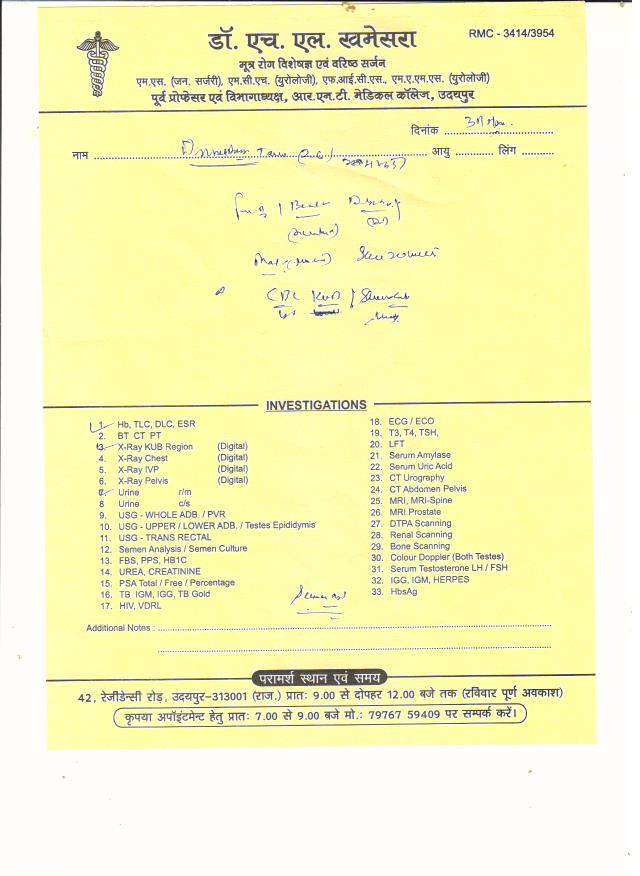 डॉ. एच. एल. खमेसरा
RMC - 3414/3954
मूत्र रोग विशेषज्ञ एवं वरिष्ठ सर्जन
एम.एस. (जन. सर्जरी), एम.सी.एच. (यूरोलोजी), एफ.आई.सी.एस., एम.ए.एम.एस. (यूरोलोजी)
पूर्व प्रोफेसर एवं विभागाध्यक्ष, आर.एन.टी. मेडिकल कॉलेज, उदयपुर
दिनांक
नाम आयु लिंग
INVESTIGATIONS
1. Hb, TLC, DLC, ESR
2. BT CT PT
3. X-Ray KUB Region (Digital)
4. X-Ray Chest (Digital)
5. X-Ray IVP (Digital)
6. X-Ray Pelvis (Digital)
7. Urine r/m
8 Urine c/s
9. USG - WHOLE ADB. / PVR
10. USG - UPPER / LOWER ADB. / Testes Epididymis
11. USG - TRANS RECTAL
12. Semen Analysis / Semen Culture
13. FBS, PPS, HB1C
14. UREA, CREATININE
15. PSA Total / Free / Percentage
16. TB IGM, IGG, TB Gold
17. HIV, VDRL
18. ECG / ECO
19. T3, T4, TSH,
20. LFT
21. Serum Amylase
22. Serum Uric Acid
23. CT Urography
24. CT Abdomen Pelvis
25. MRI, MRI-Spine
26. MRI Prostate
27. DTPA Scanning
28. Renal Scanning
29. Bone Scanning
30. Colour Doppler (Both Testes)
31. Serum Testosterone LH / FSH
32. IGG, IGM, HERPES
33. HbsAg
Additional Notes :
परामर्श स्थान एवं समय
42, रेजीडेन्सी रोड़, उदयपुर-313001 (राज.) प्रातः 9.00 से दोपहर 12.00 बजे तक (रविवार पूर्ण अवकाश)
कृपया अपॉइंटमेन्ट हेतु प्रातः 7.00 से 9.00 बजे मो.: 79767 59409 पर सम्पर्क करें।